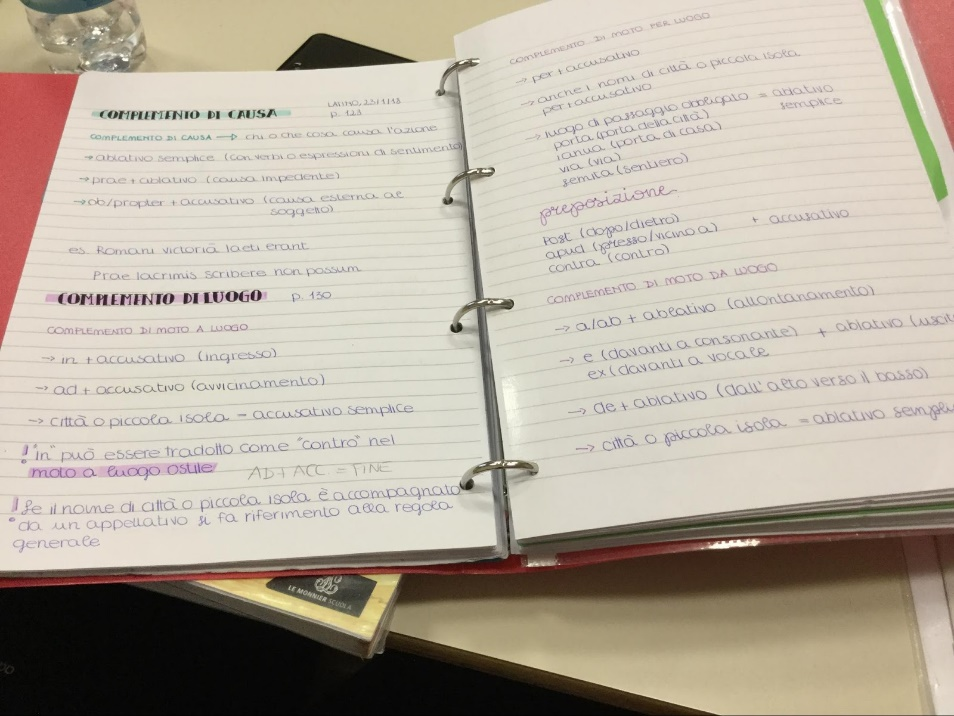 LATINO, 23/1/18
COMPLEMENTO DI CAUSA p. 123
COMPLEMENTO DI CAUSA → chi o che cosa causa l'azione
→ ablativo semplice (con verbi o espressioni di sentimento)
→ prae + ablativo (causa impediente)
→ ob/propter + accusativo (causa esterna al
soggetto)
es. Romani victoriā laeti erant
Prae lacrimis scribere non possum
COMPLEMENTO DI LUOGO p. 130
COMPLEMENTO DI MOTO A LUOGO
→ in + accusativo (ingresso)
→ ad + accusativo (avvicinamento)
→ città o piccola isola = accusativo semplice
! "in" può essere tradotto come "contro" nel
moto a luogo ostile AD + ACC = FINE
! Se il nome di città o piccola isola è accompagnato
da un appellativo si fa riferimento alla regola
generale
COMPLEMENTO DI MOTO PER LUOGO
→ per + accusativo
→ anche i nomi di città o piccola isola
per + accusativo
→ luogo di passaggio obbligato = ablativo
porta (porta della città) semplice
ianua (porta di casa)
via (via)
semita (sentiero)
preposizione
Post (dopo/dietro)
apud (presso/vicino a) + accusativo
contra (contro)
COMPLEMENTO DI MOTO DA LUOGO
→ a/ab + ablativo (allontanamento)
→ e (davanti a consonante) + ablativo
ex (davanti a vocale
→ de + ablativo (dall'alto verso il basso)
→ città o piccola isola = ablativo
LE MONNIER SCUOLA